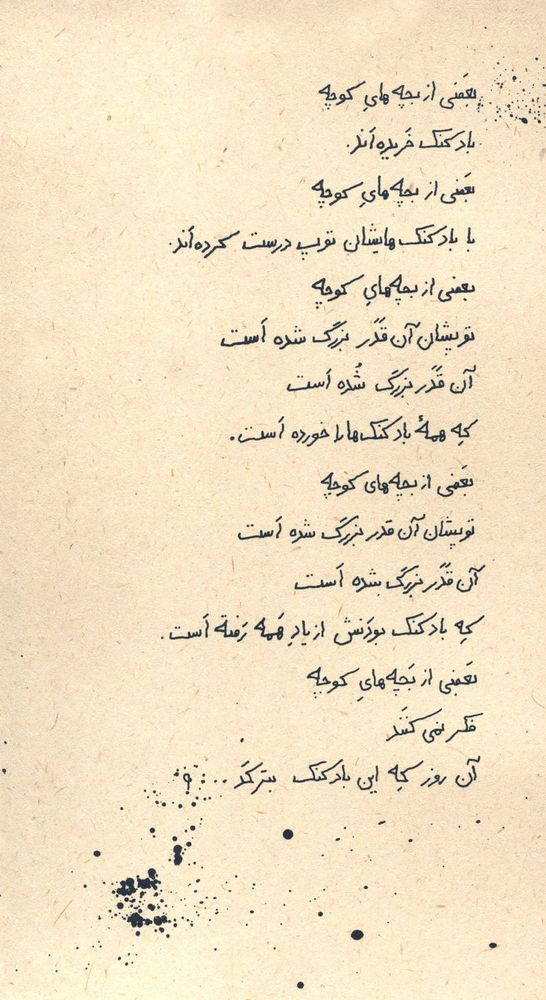 بعَضی از بچه‌هایِ کوچه
بادکنک خَریده‌اَند.
بعَضی از بچه‌هایِ کوچه
با بادکنک‌هایشان توپ درست کرده‌اَند.
بعضی از بچه‌هایِ کوچه
توپشان آن قَدر بزرگ شده اَست
آن قَدر بزرگ شُده اَست
کِه همهٔ بادکنک‌ها را خورده اَست.
بعَضی از بچه‌های کوچه
توپشان آن قدر بزرگ شده اَست
آن قَدر بزرگ شده اَست
کِه بادکنک بودَنش از یادِ هَمه رَفته اَست.
بعَضی از بَچه‌هایِ کوچه
فکر نمی‌کنَند
آن روز کِه این بادکنک بترکَد ...؟